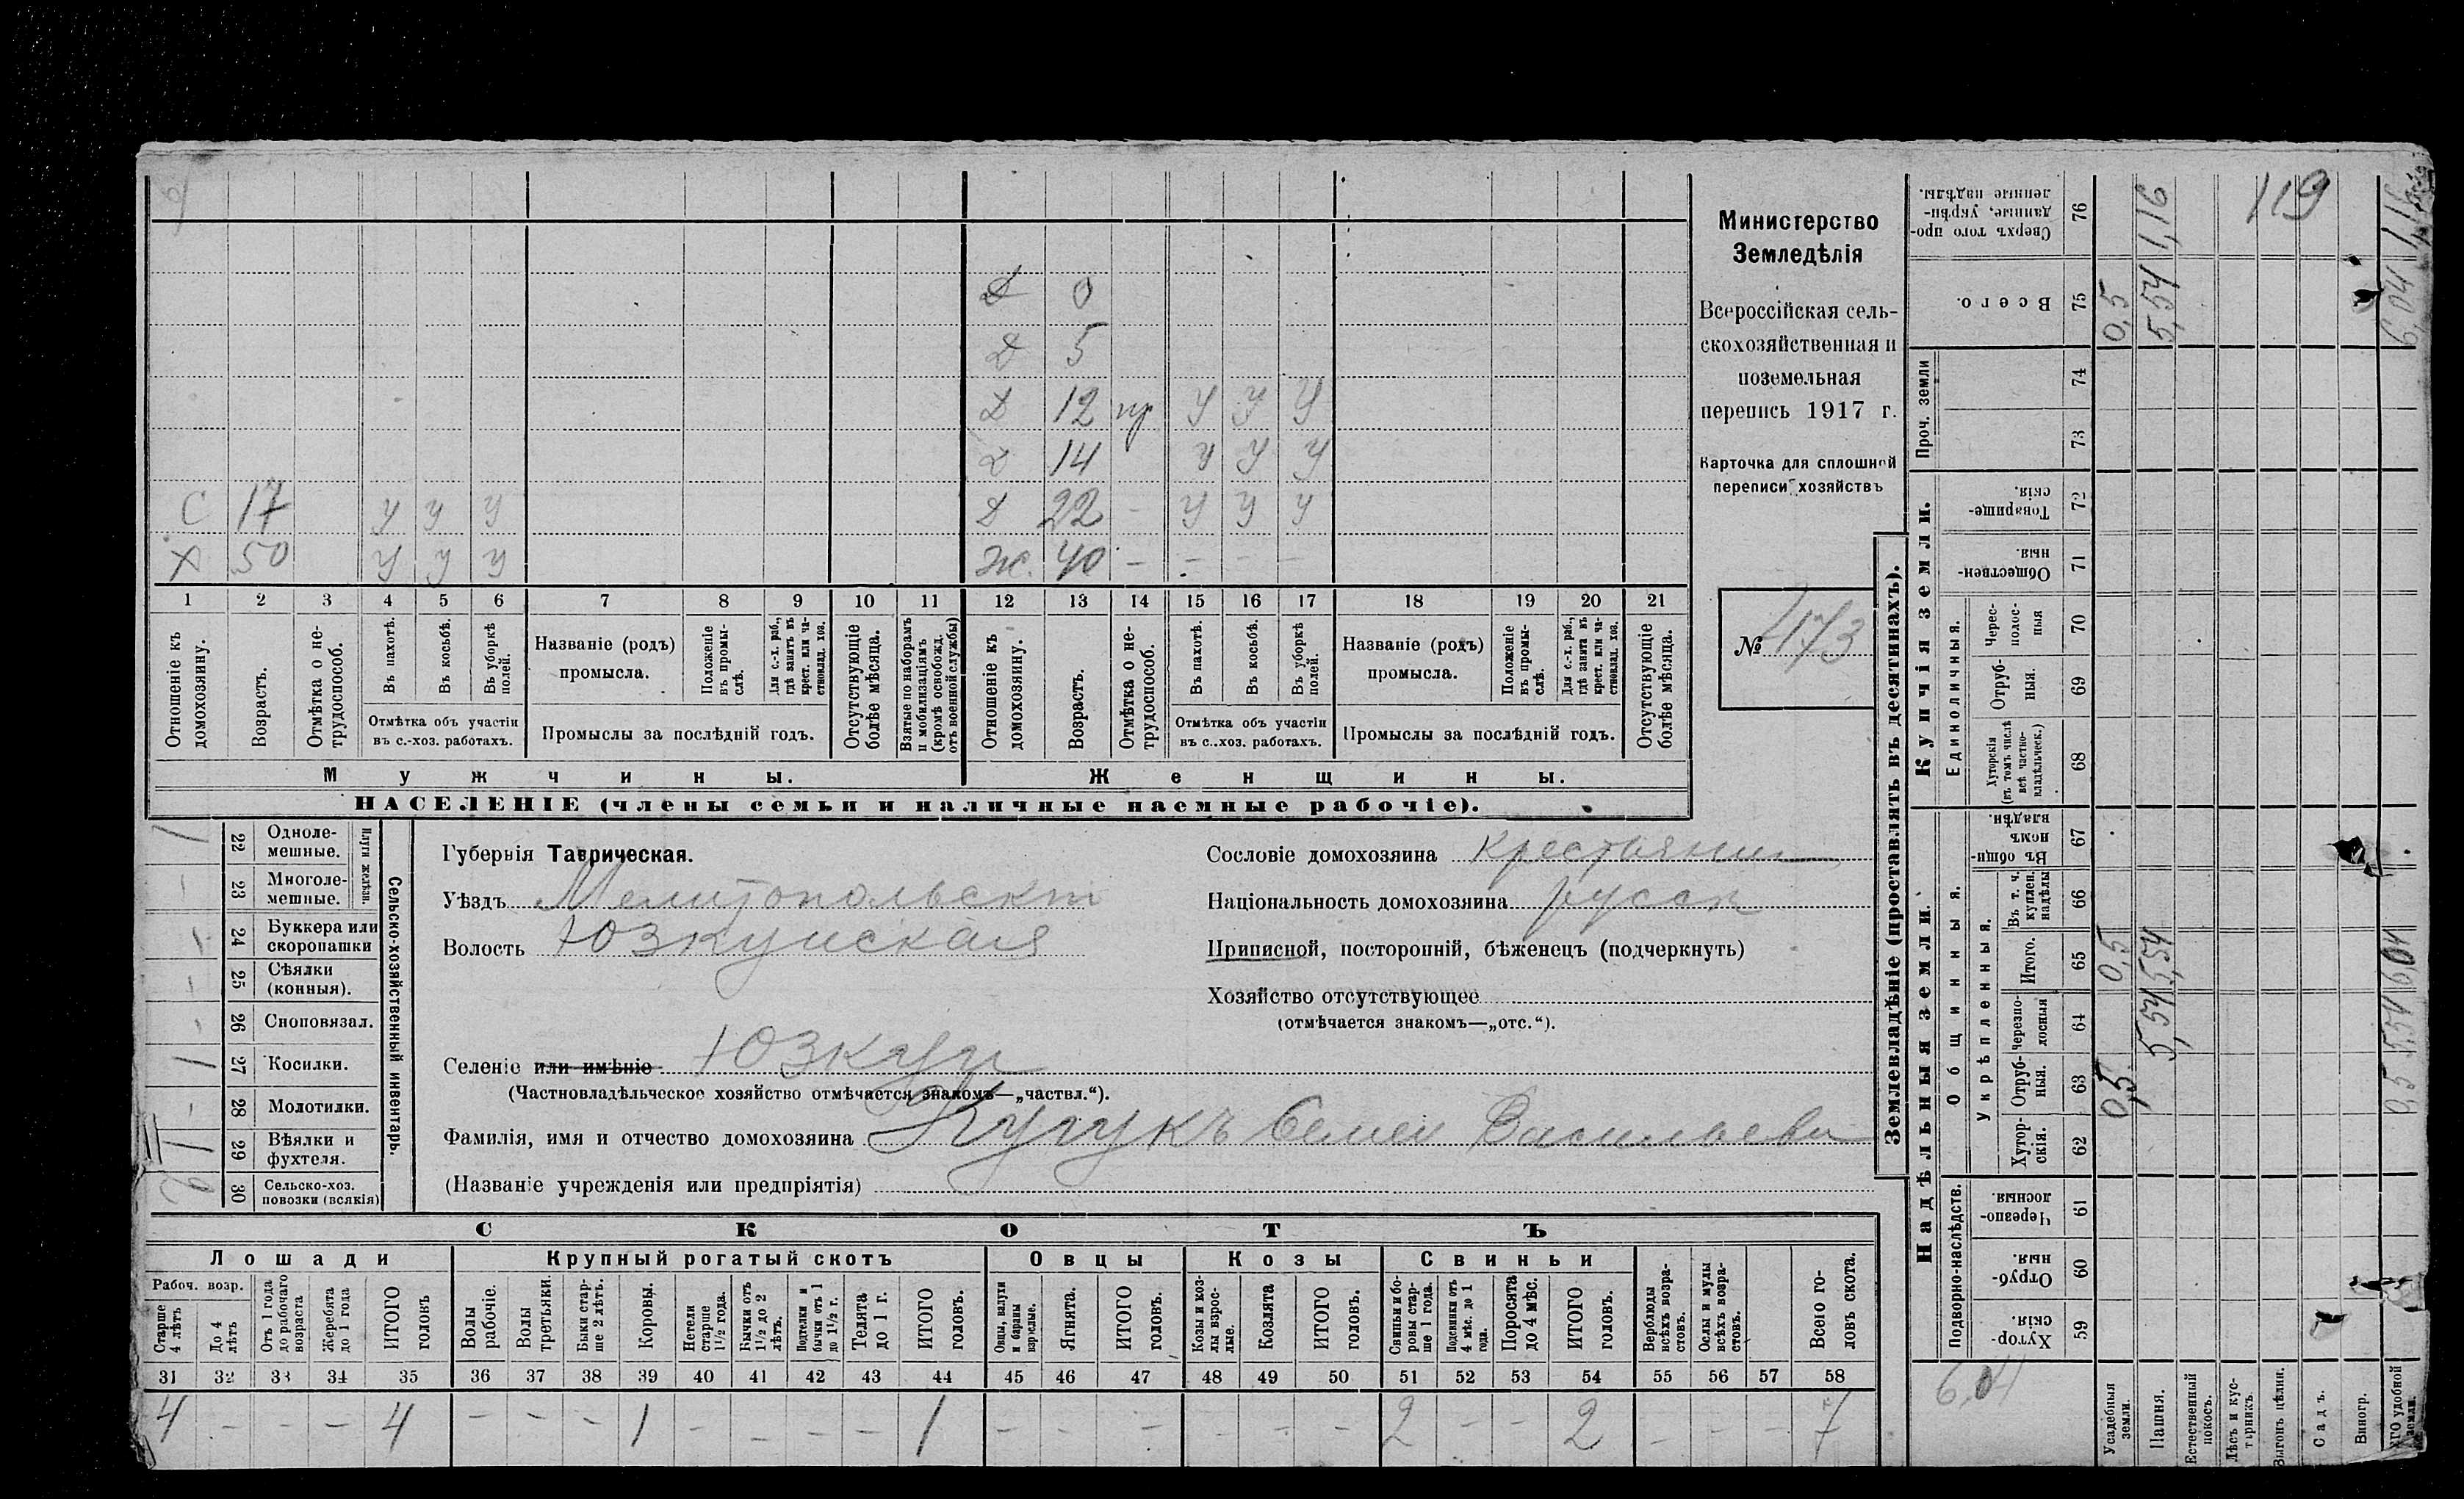 119
Д 0
Д 5
Д 12 пр У У У
Д 14 У У У
С 17 У У У Д 22 - У У У
Х 50 У У У Ж. 40 - - - -
1 2 3 4 5 6 7 8 9 10 11 12 13 14 15 16 17 18 19 20 21
Отношеніе къ домохозяину.
Возрастъ.
Отмѣтка о нетрудоспособ.
Въ пахотѣ.
Въ косьбѣ.
Въ уборкѣ полей.
Отмѣтка объ участіи
въ с.-хоз. работахъ.
Названіе (родъ)
промысла.
Положеніе въ промыслѣ.
Для с.-х. раб., гдѣ занятъ въ крест. или частновлад. хоз.
Промыслы за послѣдній годъ.
Отсутствующіе болѣе мѣсяца.
Взятые по наборамъ и мобилизаціямъ (кромѣ освобожд. отъ военной службы)
Отношеніе къ домохозяину.
Возрастъ.
Отмѣтка о нетрудоспособ.
Въ пахотѣ.
Въ косьбѣ.
Въ уборкѣ полей.
Отмѣтка объ участіи
въ с.-хоз. работахъ.
Названіе (родъ)
промысла.
Положеніе въ промыслѣ.
Для с.-х. раб., гдѣ занята въ крест. или частновлад. хоз.
Промыслы за послѣдній годъ.
Отсутствующіе болѣе мѣсяца.
Мужчины.
Женщины.
НАСЕЛЕНІЕ (члены семьи и наличные наемные рабочіе).
Министерство
Земледѣлія
Всероссійская сель-
скохозяйственная и
поземельная
перепись 1917 г.
Карточка для сплошной
переписи хозяйствъ
№ 173
1 22 Одноле-
мешные.
- 23 Многоле-
мешные.
Плуги желѣзн.
24 Буккера или
скоропашки
- 25 Сѣялки
(конныя).
- 26 Сноповязал.
1 27 Косилки.
- 28 Молотилки.
1 29 Вѣялки и
фухтеля.
2 30 Сельско-хоз.
повозки (всякія)
Сельско-хозяйственный инвентарь.
Губернія Таврическая.
Уѣздъ Мелитопольскій
Волость Юзкуйская
Селеніе или имѣніе Юзкуи
(Частновладѣльческое хозяйство отмѣчается знакомъ—„частвл.“).
Фамилія, имя и отчество домохозяина Кугукъ Семен Васильевич
(Названіе учрежденія или предпріятія)
Сословіе домохозяина крестьянин
Національность домохозяина русск
Приписной, посторонній, бѣженецъ (подчеркнуть)
Хозяйство отсутствующее
(отмѣчается знакомъ—„отс.“).
СКОТЪ
Лошади Крупный рогатый скотъ Овцы Козы Свиньи
Рабоч. возр.
Старше 4 лѣтъ
До 4 лѣтъ
Отъ 1 года до рабочаго возраста
Жеребята до 1 года
ИТОГО головъ
Волы рабочіе.
Волы третьяки.
Быки старше 2 лѣтъ.
Коровы.
Нетели старше 1½ года.
Бычки отъ 1½ до 2 лѣтъ.
Подтелки и бычки отъ 1 до 1½ г.
Телята до 1 г.
ИТОГО головъ.
Овцы, валухи и бараны взрослые.
Ягнята.
ИТОГО головъ.
Козы и козлы взрослые.
Козлята
ИТОГО головъ.
Свиньи и боровы старше 1 года.
Подсвинки отъ 4 мѣс. до 1 года.
Поросята до 4 мѣс.
ИТОГО головъ.
Верблюды всѣхъ возрастовъ.
Ослы и мулы всѣхъ возрастовъ.
Всего головъ скота.
31 32 33 34 35 36 37 38 39 40 41 42 43 44 45 46 47 48 49 50 51 52 53 54 55 56 57 58
4 - - - 4 - - - 1 - - - - 1 - - - - - - 2 - - 2 - - - 7
Землевладѣніе (проставлять въ десятинахъ).
Надѣльныя земли.
Купчія земли.
Проч. земли
Подворно-наслѣдств.
Общинныя.
Укрѣпленныя.
Единоличныя.
Хуторскія. 59
Отрубныя. 60
Черезполосныя. 61
Хуторскія. 62
Отрубныя. 63
Черезполосныя 64
Итого. 65
Въ т. ч. куплен. надѣлы 66
Въ общинномъ владѣн. 67
Хуторскія (въ томъ числѣ всѣ частновладѣльческ.) 68
Отрубныя. 69
Черезполосныя 70
Общественныя. 71
Товарищескія. 72
73
74
Всего. 75
Сверхъ того проданные, укрѣпленные надѣлы. 76
6,04
Усадебныя земли. 0,5 0,5 0,5
Пашня. 5,54 5,54 5,54 1,16
Естественный покосъ.
Лѣсъ и кустарникъ.
Выгонъ цѣлин.
Садъ.
Виногр.
удобной земли. 0,5 5,54 6,04 6,04 1,16